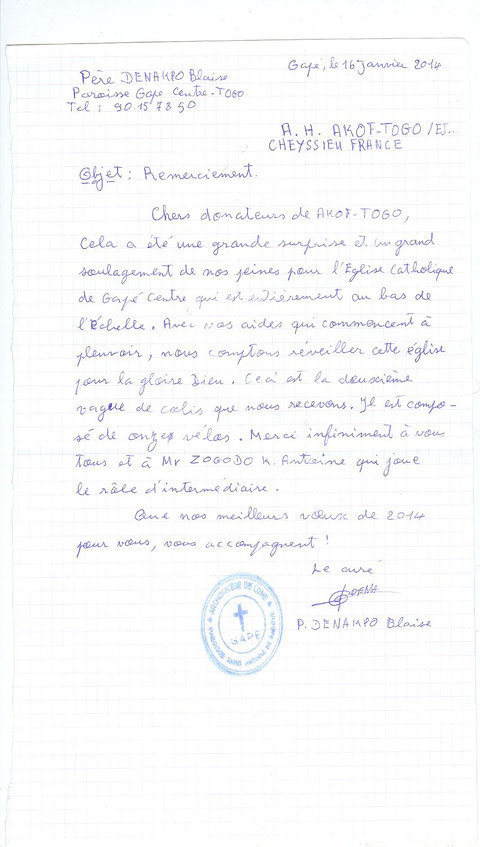 Gapé, le 16 Janvier 2014
Père DENAKPO Blaise
Paroisse Gape Centre-TOGO
Tel : 90 15 78 50
A.H. AKOF-TOGO /EJ...
CHEYSSIEU FRANCE
Objet : Remerciement.
Chers donateurs de AKOF-TOGO,
Cela a été une grande surprise et un grand
soulagement de nos peines pour l'Eglise Catholique
de Gapé Centre qui est entièrement au bas de
l'échelle. Avec vos aides qui commencent à
pleuvoir, nous comptons réveiller cette église
pour la gloire Dieu. Ceci est la deuxième
vague de colis que nous recevons. Il est compo-
sé de onze vélos. Merci infiniment à vous
tous et à Mr ZOGODO K. Antoine qui joue
le rôle d'intermédiaire.
Que nos meilleurs vœux de 2014
pour vous, vous accompagnent !
Le curé
DENA
P. DENAKPO Blaise
ARCHIDIOCESE DE LOME
GAPE
PAROISSE SAINT ANTOINE DE PADOUE